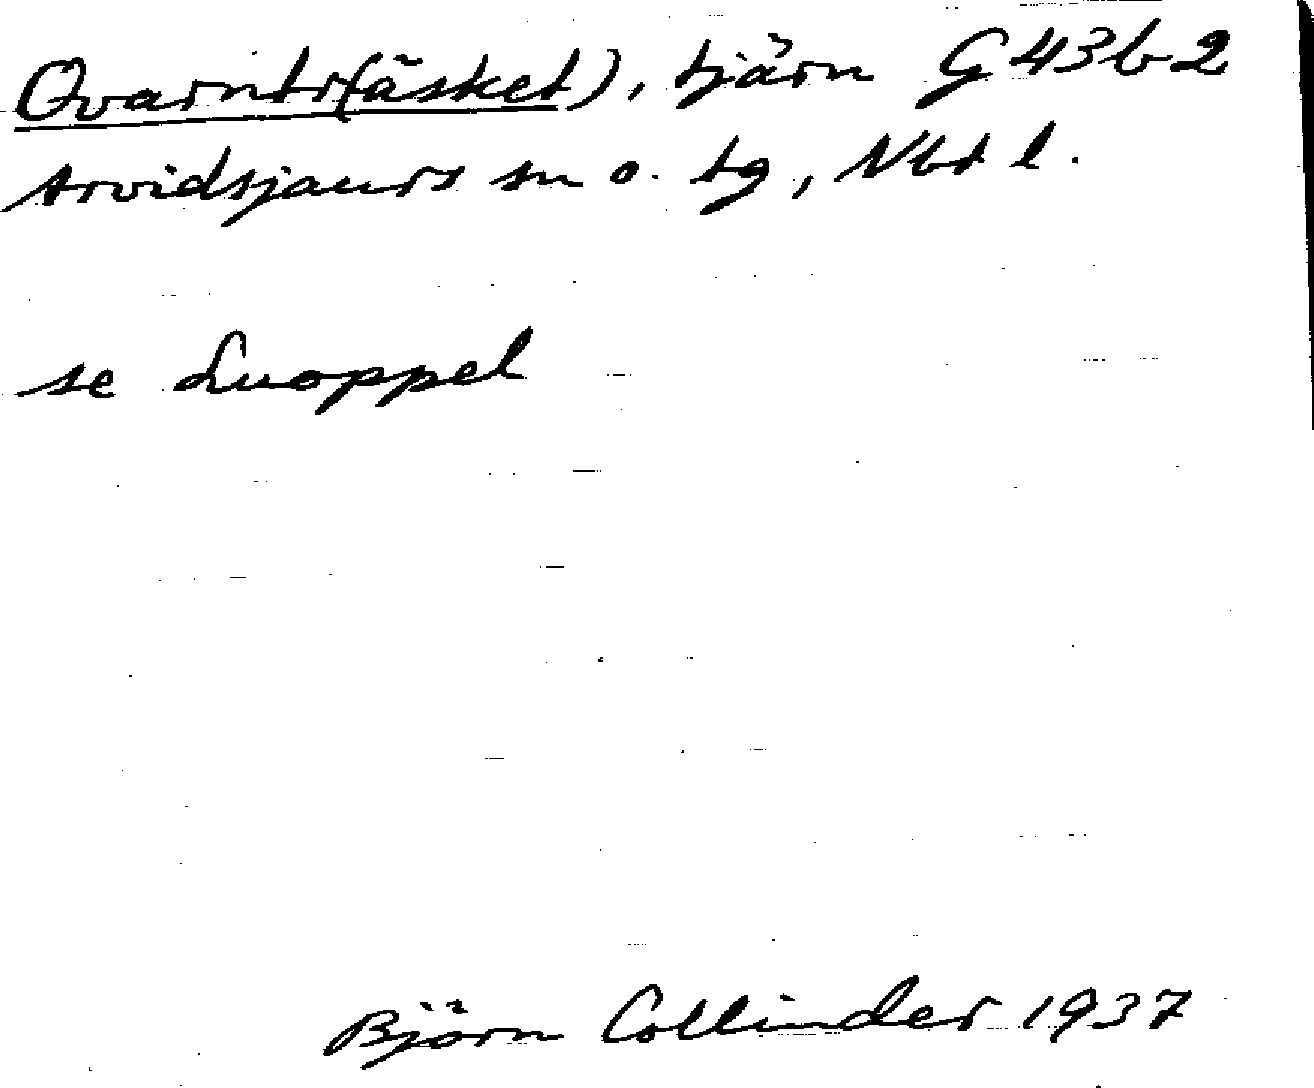 Qvarntr(äsket), tjärn G 43 b 2
Arvidsjaurs sn o. tg, Nbt l.
se Luoppel
Björn Collinder 1937